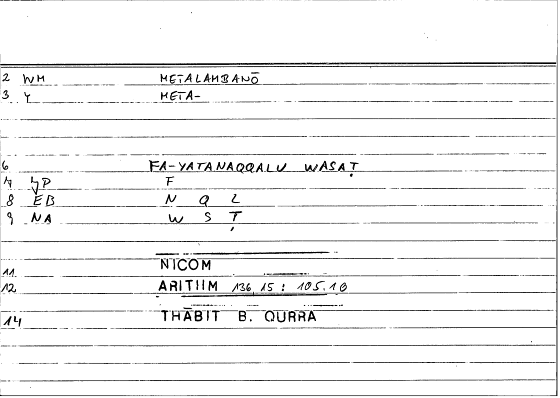 2 WM METALAMBANŌ
3 Y META-
6 FA-YATANAQQALU WASAṬ
7 ↳P F
8 EB N Q L
9 NA W S Ṭ
11 NICOM
12 ARITHM 136,15 : 105.10
14 THĀBIT B. QURRA